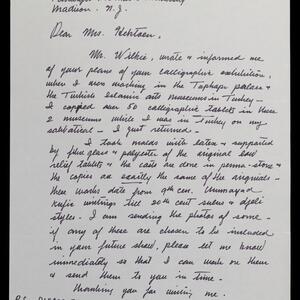 Madison. N.J.
Dear Mrs.
Mr. Wilkes, wrote & informed me
of your plans of your calligraphic exhibition,
when I was working in the Topkapi palace &
the Turkish Islamic arts museums in Turkey -
I copied over 50 calligraphic tablets in these
2 museums while I was in Turkey on my
sabbatical - I just returned -
I took molds with latex & supported
by fibre glass & polyester of the original low
relief tablets & the casts are done in perma-stone &
the copies are exactly the same of the originals -
these works date from 9th cen. Ummayad
kufic writings till 20th cent sulus &
styles. I am sending the photos of some -
if any of these are chosen to be included
in your future show, please let me know
immediately so that I can work on them
& send them to you in time -
Thanking you for writing me.
P.S.